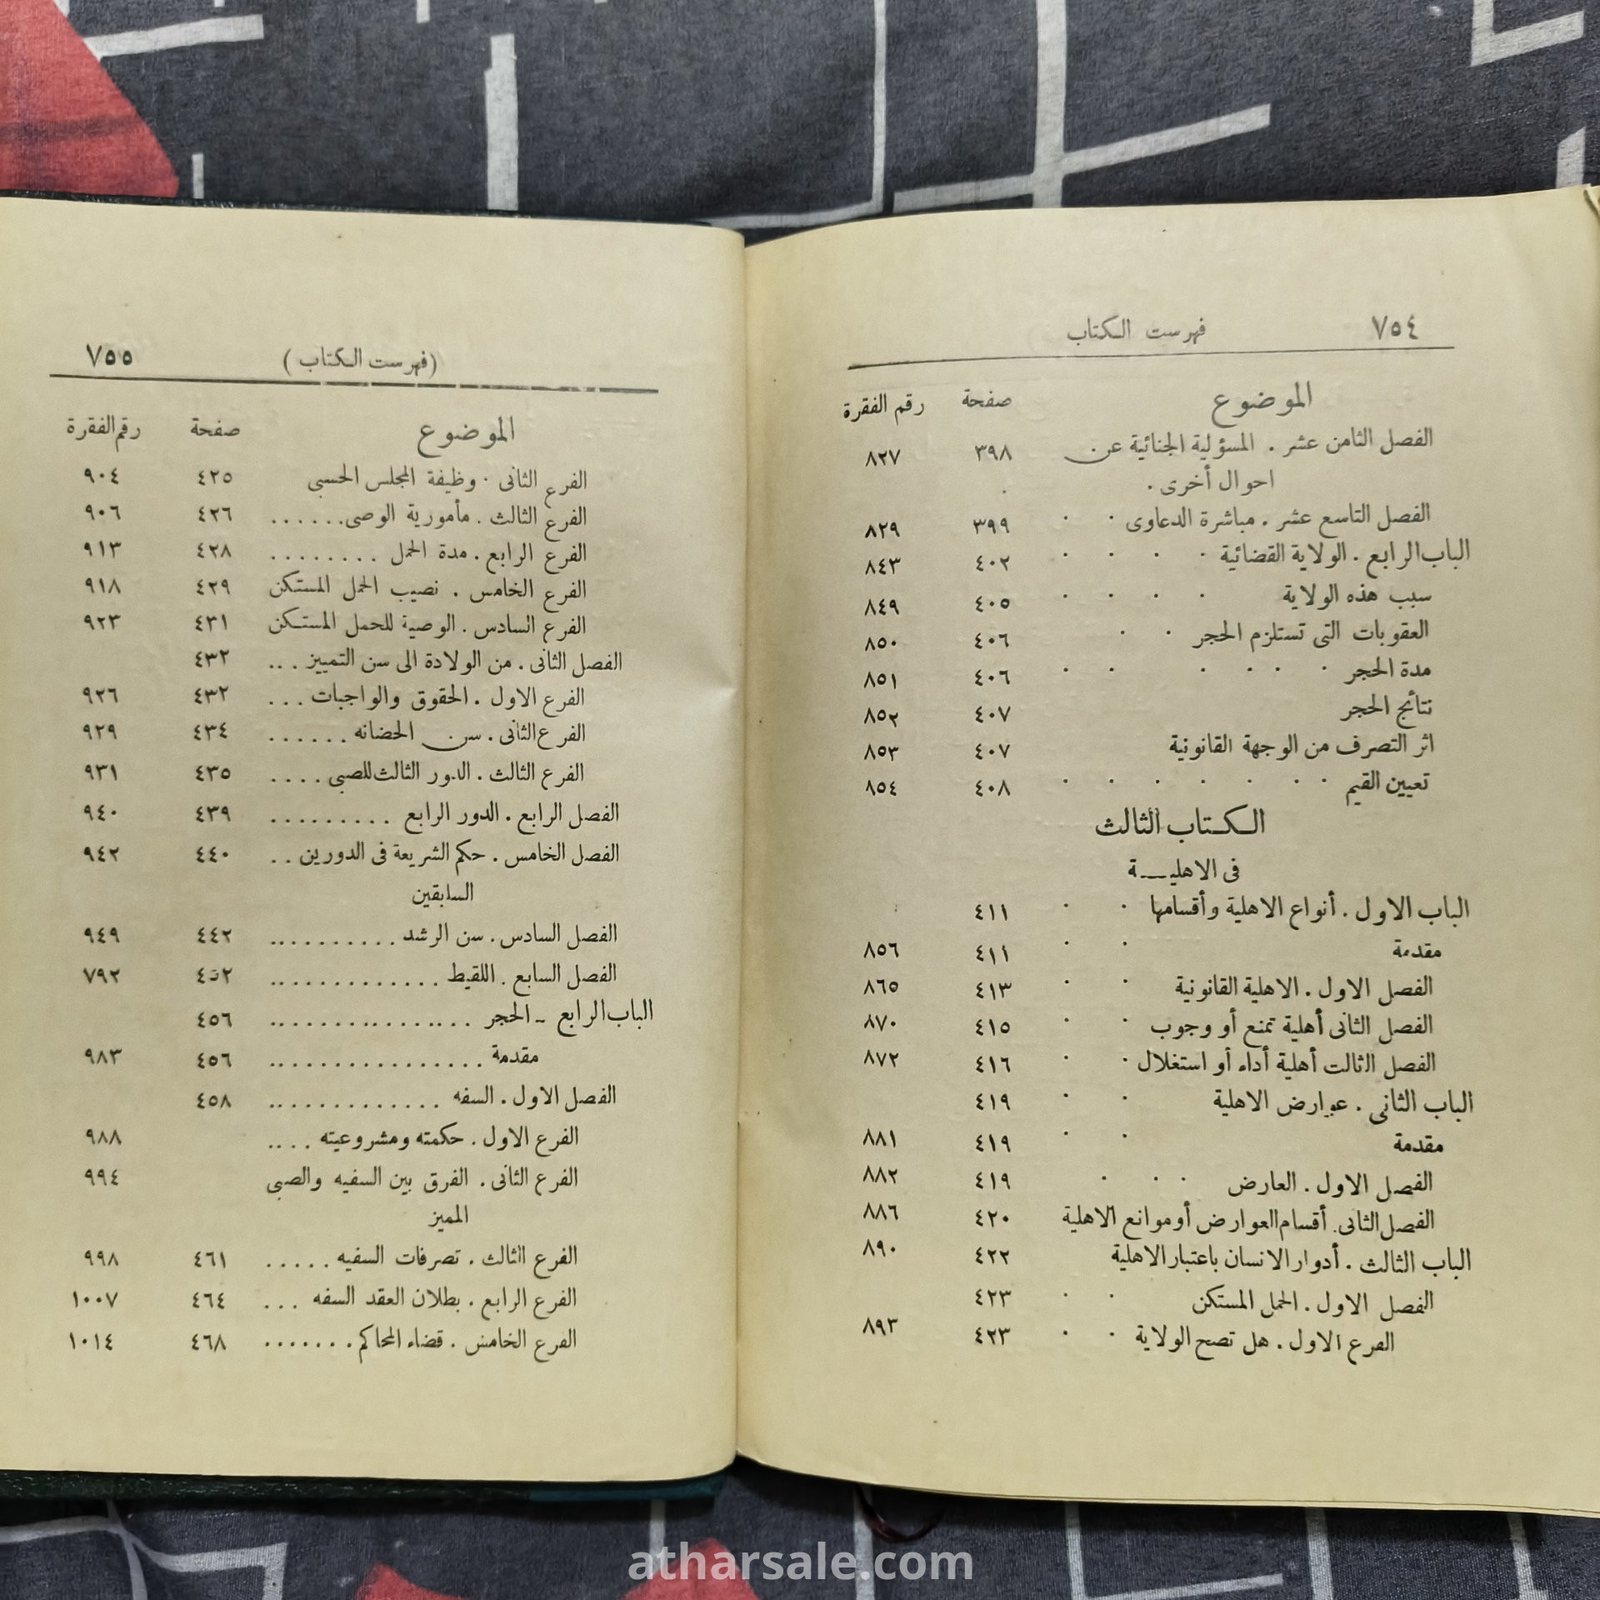 ٧٥٤ فهرست الكتاب
الموضوع صفحة رقم الفقرة
الفصل الثامن عشر . المسؤلية الجنائية عن ٣٩٨ ٨٢٧
احوال أخرى .
الفصل التاسع عشر . مباشرة الدعاوى . . ٣٩٩ ٨٢٩
الباب الرابع . الولاية القضائية . . . . ٤٠٢ ٨٤٣
سبب هذه الولاية . . . . ٤٠٥ ٨٤٩
العقوبات التى تستلزم الحجر . . ٤٠٦ ٨٥٠
مدة الحجر . . . . . . ٤٠٦ ٨٥١
نتائج الحجر ٤٠٧ ٨٥٢
اثر التصرف من الوجهة القانونية ٤٠٧ ٨٥٣
تعيين القيم . . . . . . . ٤٠٨ ٨٥٤
الكتاب الثالث
فى الاهلية
الباب الاول . أنواع الاهلية وأقسامها . . ٤١١
مقدمة . . ٤١١ ٨٥٦
الفصل الاول . الاهلية القانونية . . ٤١٣ ٨٦٥
الفصل الثانى أهلية تمنع أو وجوب . . ٤١٥ ٨٧٠
الفصل الثالت أهلية أداء أو استغلال . . ٤١٦ ٨٧٢
الباب الثانى . عوارض الاهلية . . ٤١٩
مقدمة . . ٤١٩ ٨٨١
الفصل الاول . العارض . . . ٤١٩ ٨٨٢
الفصل الثانى . أقسام العوارض أو موانع الاهلية ٤٢٠ ٨٨٦
الباب الثالث . أدوار الانسان باعتبار الاهلية ٤٢٢ ٨٩٠
الفصل الاول . الحمل المستكن . . ٤٢٣
الفرع الاول . هل تصح الولاية . . ٤٢٣ ٨٩٣
(فهرست الكتاب) ٧٥٥
الموضوع صفحة رقم الفقرة
الفرع الثانى . وظيفة المجلس الحسبى ٤٢٥ ٩٠٤
الفرع الثالث . مأمورية الوصى ...... ٤٢٦ ٩٠٦
الفرع الرابع . مدة الحمل ........ ٤٢٨ ٩١٣
الفرع الخامس . نصيب الحمل المستكن ٤٢٩ ٩١٨
الفرع السادس . الوصية للحمل المستكن ٤٣١ ٩٢٣
الفصل الثانى . من الولادة الى سن التمييز ... ٤٣٢
الفرع الاول . الحقوق والواجبات ... ٤٣٢ ٩٢٦
الفرع الثانى . سن الحضانه ...... ٤٣٤ ٩٢٩
الفرع الثالث . الدور الثالث للصبى .... ٤٣٥ ٩٣١
الفصل الرابع . الدور الرابع ......... ٤٣٩ ٩٤٠
الفصل الخامس . حكم الشريعة فى الدورين .. ٤٤٠ ٩٤٢
السابقين
الفصل السادس . سن الرشد ........... ٤٤٢ ٩٤٩
الفصل السابع . اللقيط ............. ٤٥٢ ٧٩٢
الباب الرابع ـ الحجر .............. ٤٥٦
مقدمة ............... ٤٥٦ ٩٨٣
الفصل الاول . السفه ............. ٤٥٨
الفرع الاول . حكمته ومشروعيته .... ٩٨٨
الفرع الثانى . الفرق بين السفيه والصبى ٩٩٤
المميز
الفرع الثالث . تصرفات السفيه ..... ٤٦١ ٩٩٨
الفرع الرابع . بطلان العقد السفه ... ٤٦٤ ١٠٠٧
الفرع الخامس . قضاء المحاكم ....... ٤٦٨ ١٠١٤
atharsale.com